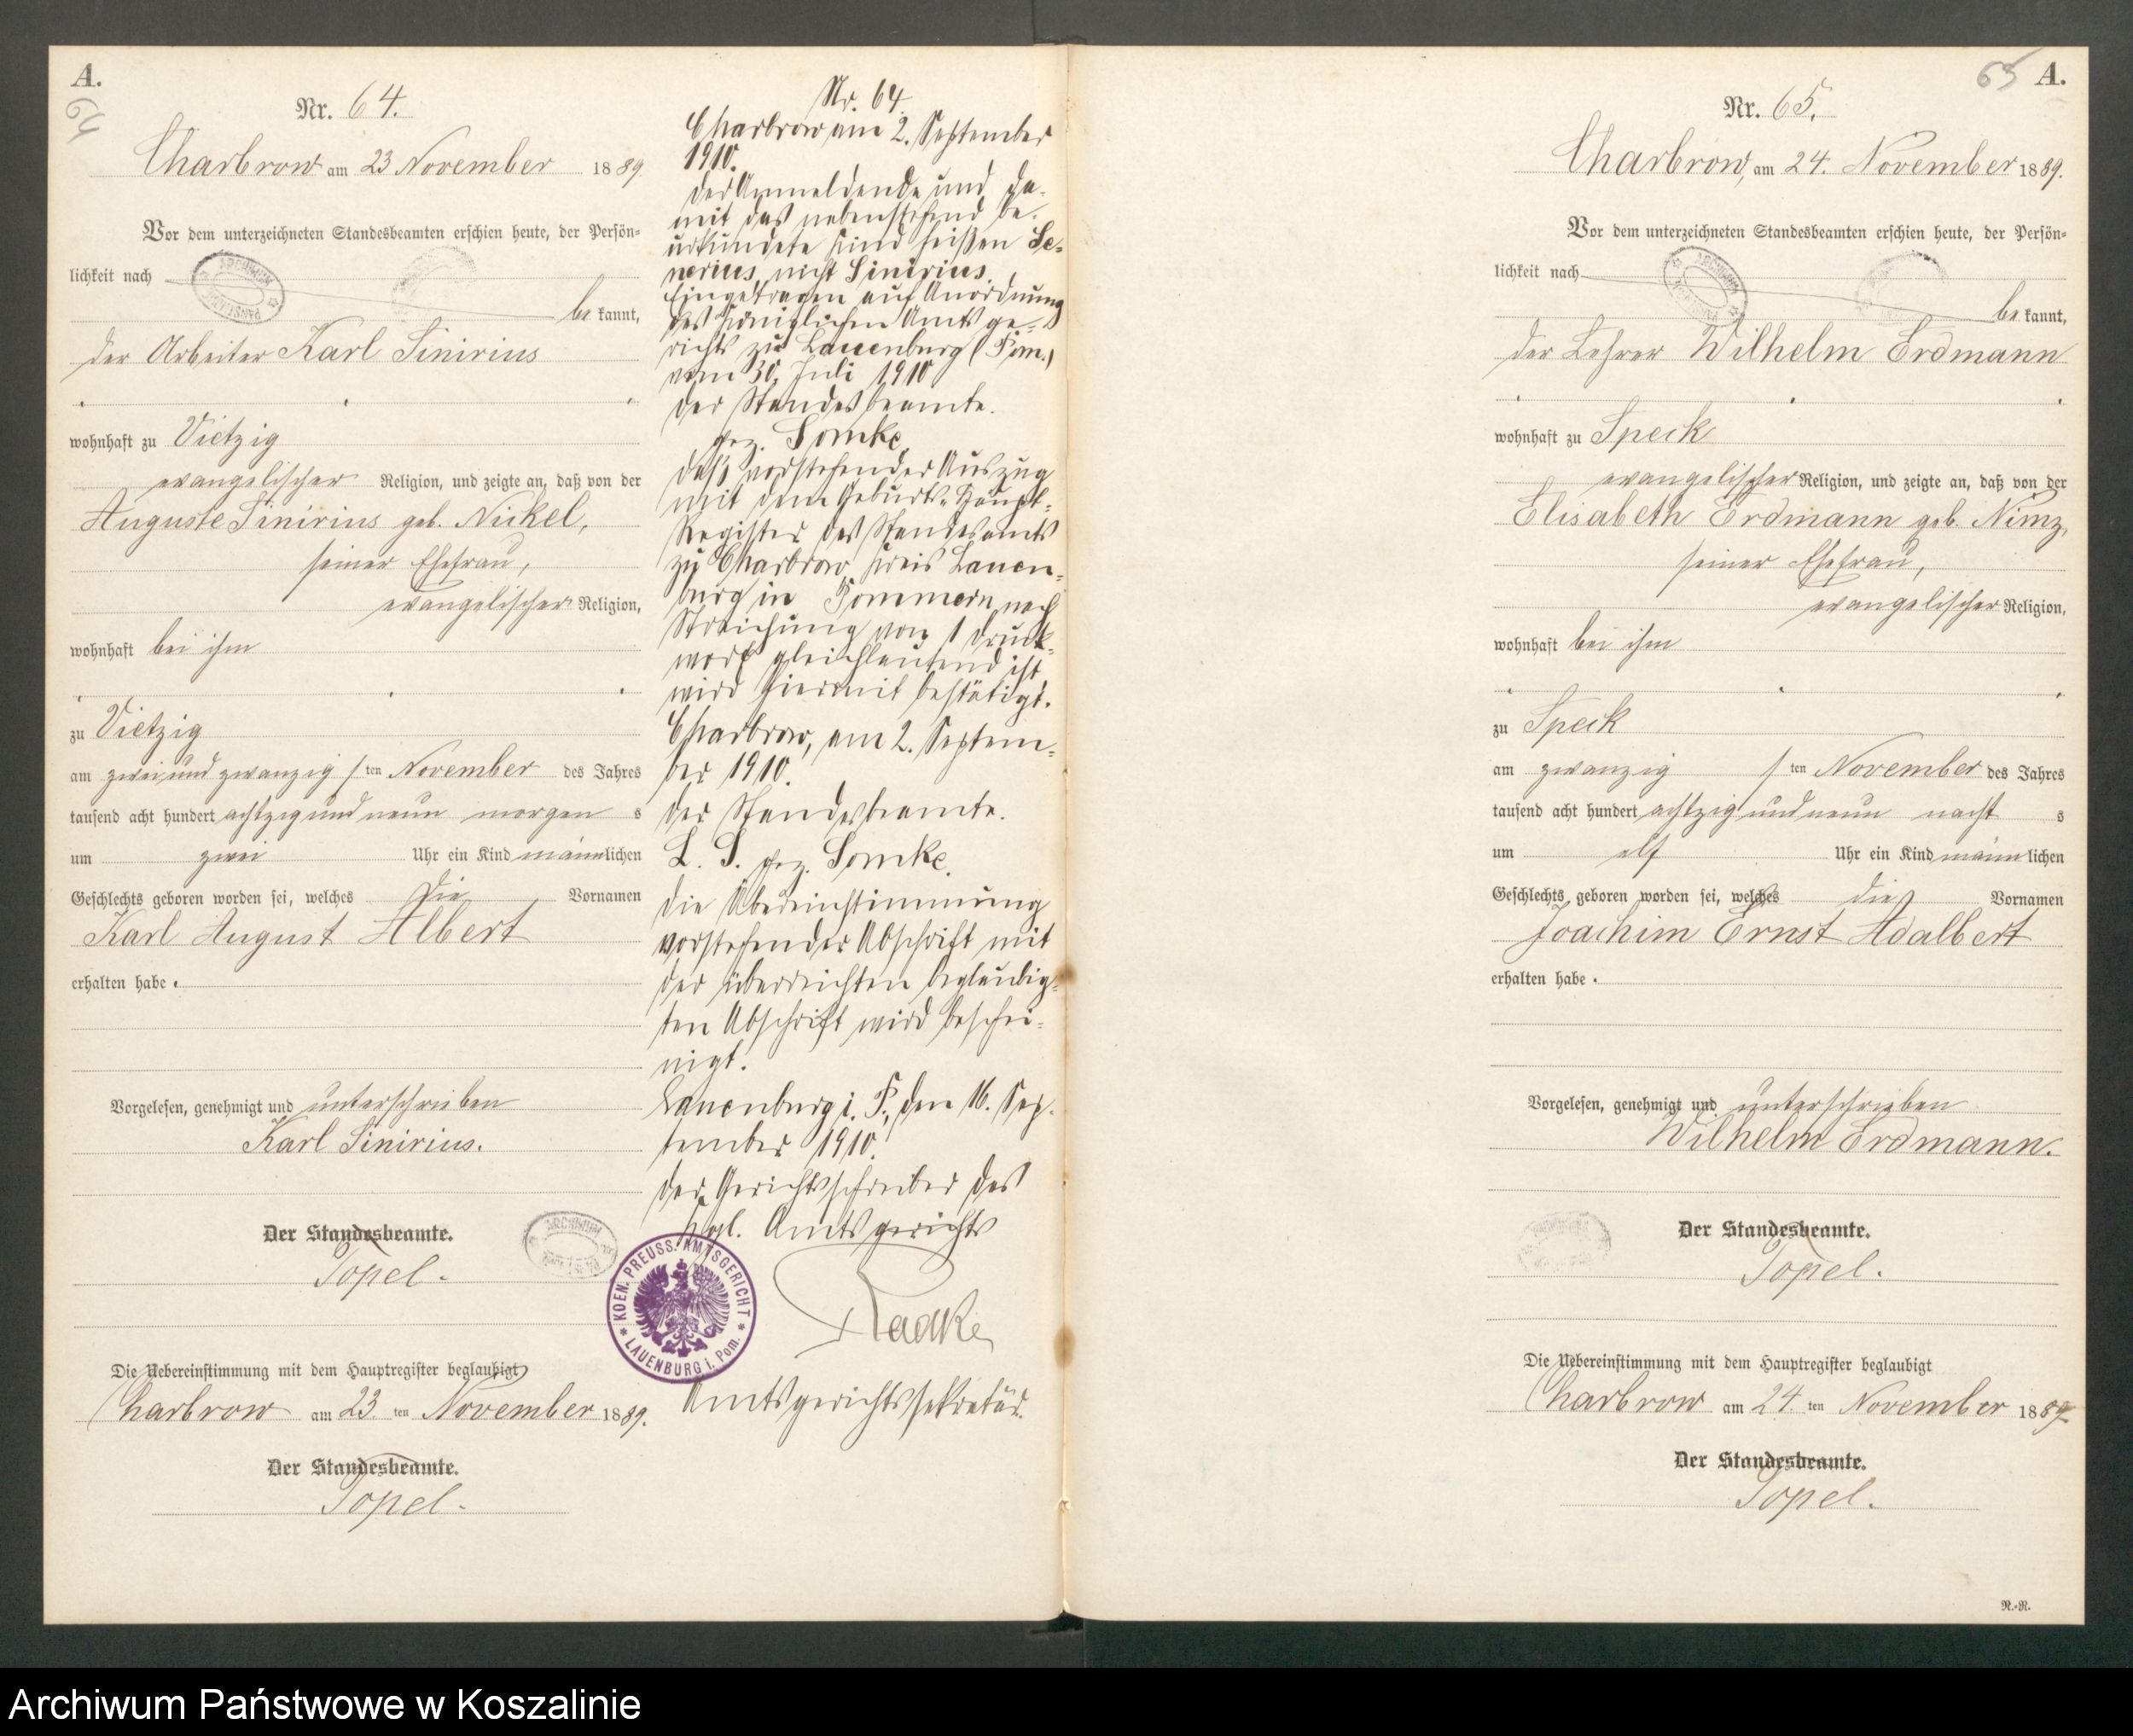 A.
64
Nr. 64.
Charbrow am 23 November 1889.
Vor dem unterzeichneten Standesbeamten erschien heute, der Persön-
lichkeit nach
be kannt,
der Arbeiter Karl Sinirius
wohnhaft zu Vietzig
evangelischer Religion, und zeigte an, daß von der
Auguste Sinirius geb. Nickel,
seiner Ehefrau,
evangelischer Religion,
wohnhaft bei ihm
zu Vietzig
am zwei und zwanzig ten November des Jahres
tausend acht hundert achtzig und neun morgen s
um zwei Uhr ein Kind männlichen
Geschlechts geboren worden sei, welches die Vornamen
Karl August Albert
erhalten habe.
Vorgelesen, genehmigt und unterschrieben
Karl Sinirius.
Der Standesbeamte.
Topel.
Die Uebereinstimmung mit dem Hauptregister beglaubigt
Charbrow am 23. ten November 1889.
Der Standesbeamte.
Topel.
Nr. 64.
Charbrow am 2. September
1910.
Der Anmeldende und da-
mit das nebenstehend be-
urkundete Kind heißen Se-
nerius, nicht Sinirius.
Eingetragen auf Anordnung
des Königlichen Amtsge-
richts zu Lauenburg (Pom.)
vom 30. Juli 1910
Der Standesbeamte.
gez. Somke
Daß vorstehender Auszug
mit dem Geburts-Haupt-
Register des Standesamts
zu Charbrow Kreis Lauen-
burg in Pommern nach
Streichung von 1 Druck-
wort gleichlautend ist,
wird hiermit bestätigt.
Charbrow, am 2. Septem-
ber 1910.
Der Standesbeamte.
L. S. gez. Somke.
Die Übereinstimmung
vorstehender Abschrift mit
der überreichten beglaubig-
ten Abschrift wird beschei-
nigt.
Lauenburg i. P., den 16. Sep-
tember 1910.
Der Gerichtsschreiber des
Kgl. Amtsgerichts
Radke
Amtsgerichtssekretär.
KOEN. PREUSS. AMTSGERICHT * LAUENBURG i. Pom. *
65 A.
Nr. 65.
Charbrow, am 24. November 1889.
Vor dem unterzeichneten Standesbeamten erschien heute, der Persön-
lichkeit nach
be kannt,
der Lehrer Wilhelm Erdmann
wohnhaft zu Speck
evangelischer Religion, und zeigte an, daß von der
Elisabeth Erdmann geb. Nimz,
seiner Ehefrau,
evangelischer Religion,
wohnhaft bei ihm
zu Speck
am zwanzig ten November des Jahres
tausend acht hundert achtzig und neun nacht s
um elf Uhr ein Kind männlichen
Geschlechts geboren worden sei, welches die Vornamen
Joachim Ernst Adalbert
erhalten habe.
Vorgelesen, genehmigt und unterschrieben
Wilhelm Erdmann.
Der Standesbeamte.
Topel.
Die Uebereinstimmung mit dem Hauptregister beglaubigt
Charbrow am 24. ten November 1889.
Der Standesbeamte.
Topel.
R.-R.
Archiwum Państwowe w Koszalinie